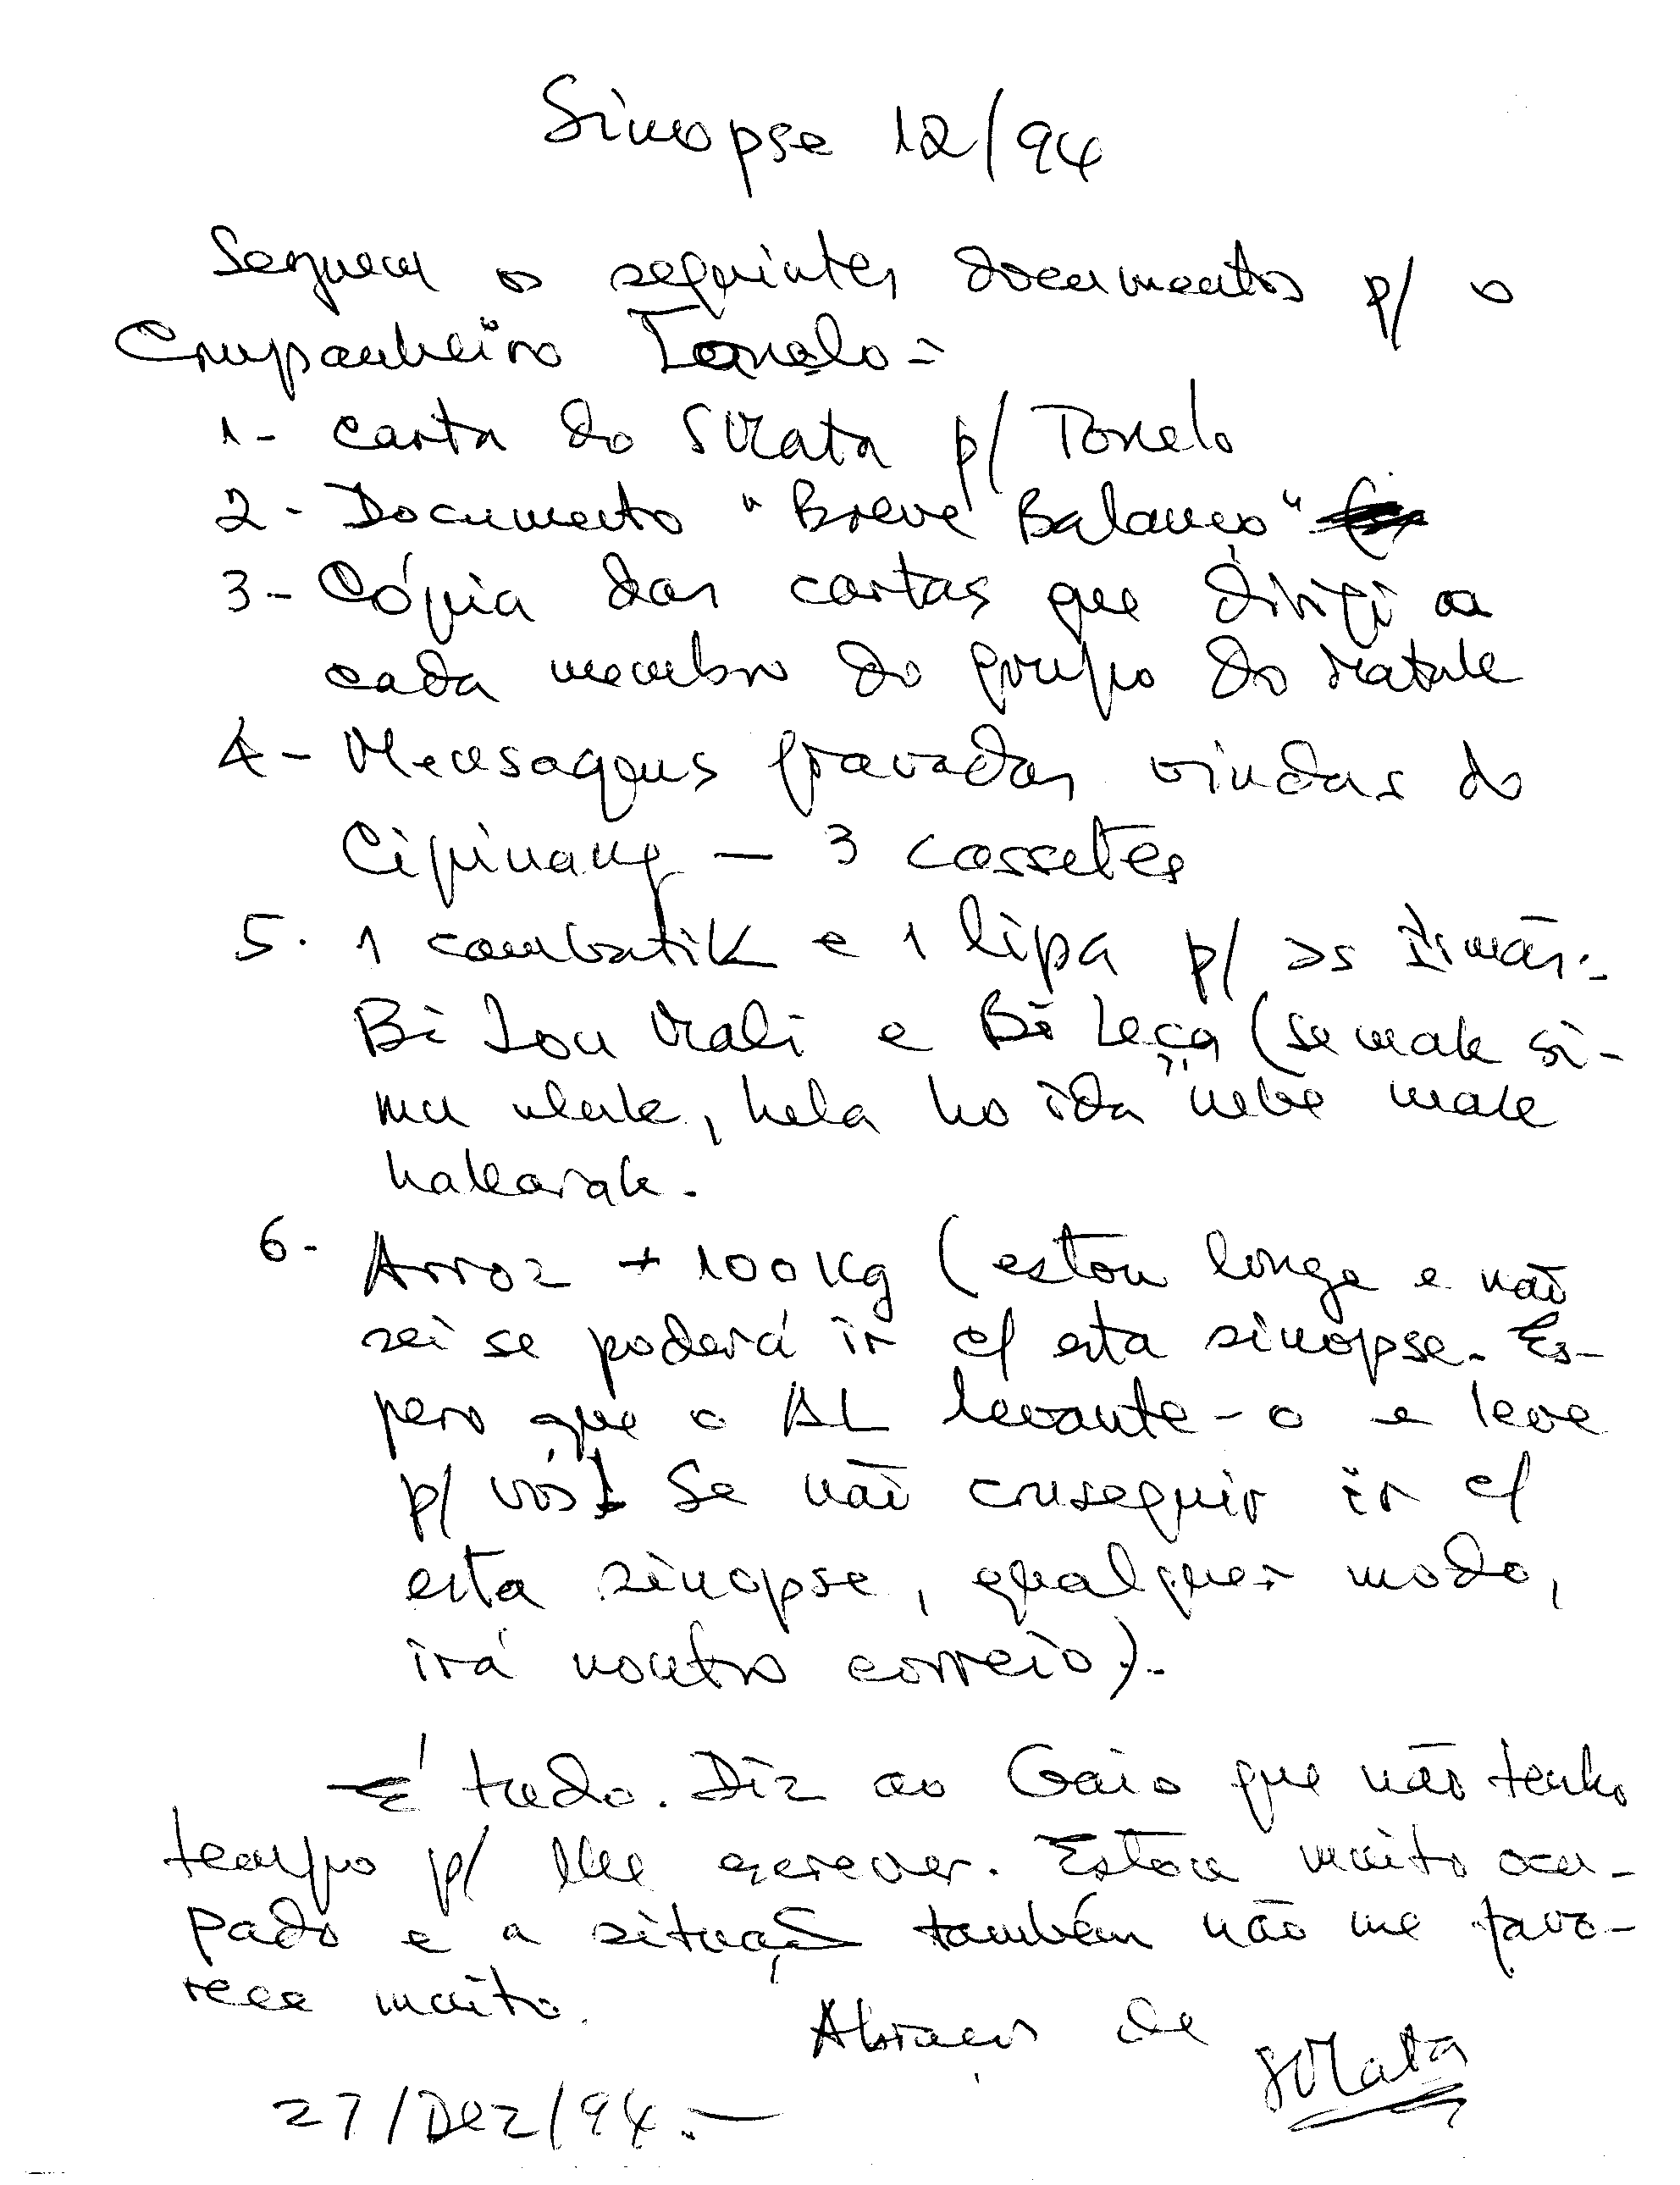 Sinopse 12/94
Seguem os seguintes documentos p/ o
Companheiro Konelo:
1- Carta do SMata p/ Konelo
2- Documento "Breve Balanço"
3- Cópia das cartas que dirigi a
cada membro do grupo do
4- Mensagens gravadas vindas de
Cipinang — 3 cassetes
5. 1 cambatik e 1 lipa p/ as Irmãs:
Bi Lou Mali e Bi Leça (se mak si-
mu uluk, hela ho ida nebé mak
hakarak.
6- Arroz + 100 Kg (estou longe e não
sei se poderá ir c/ esta sinopse. Es-
pero que o AL levante-o e leve
p/ vós! Se não conseguir ir c/
esta sinopse, qualquer modo,
irá noutro correio).-
É tudo. Diz ao Gaio que não tenho
tempo p/ lhe escrever. Estou muito ocu-
pado e a situação também não me favo-
rece muito.
Abraços de
SMata
27/Dez/94.—